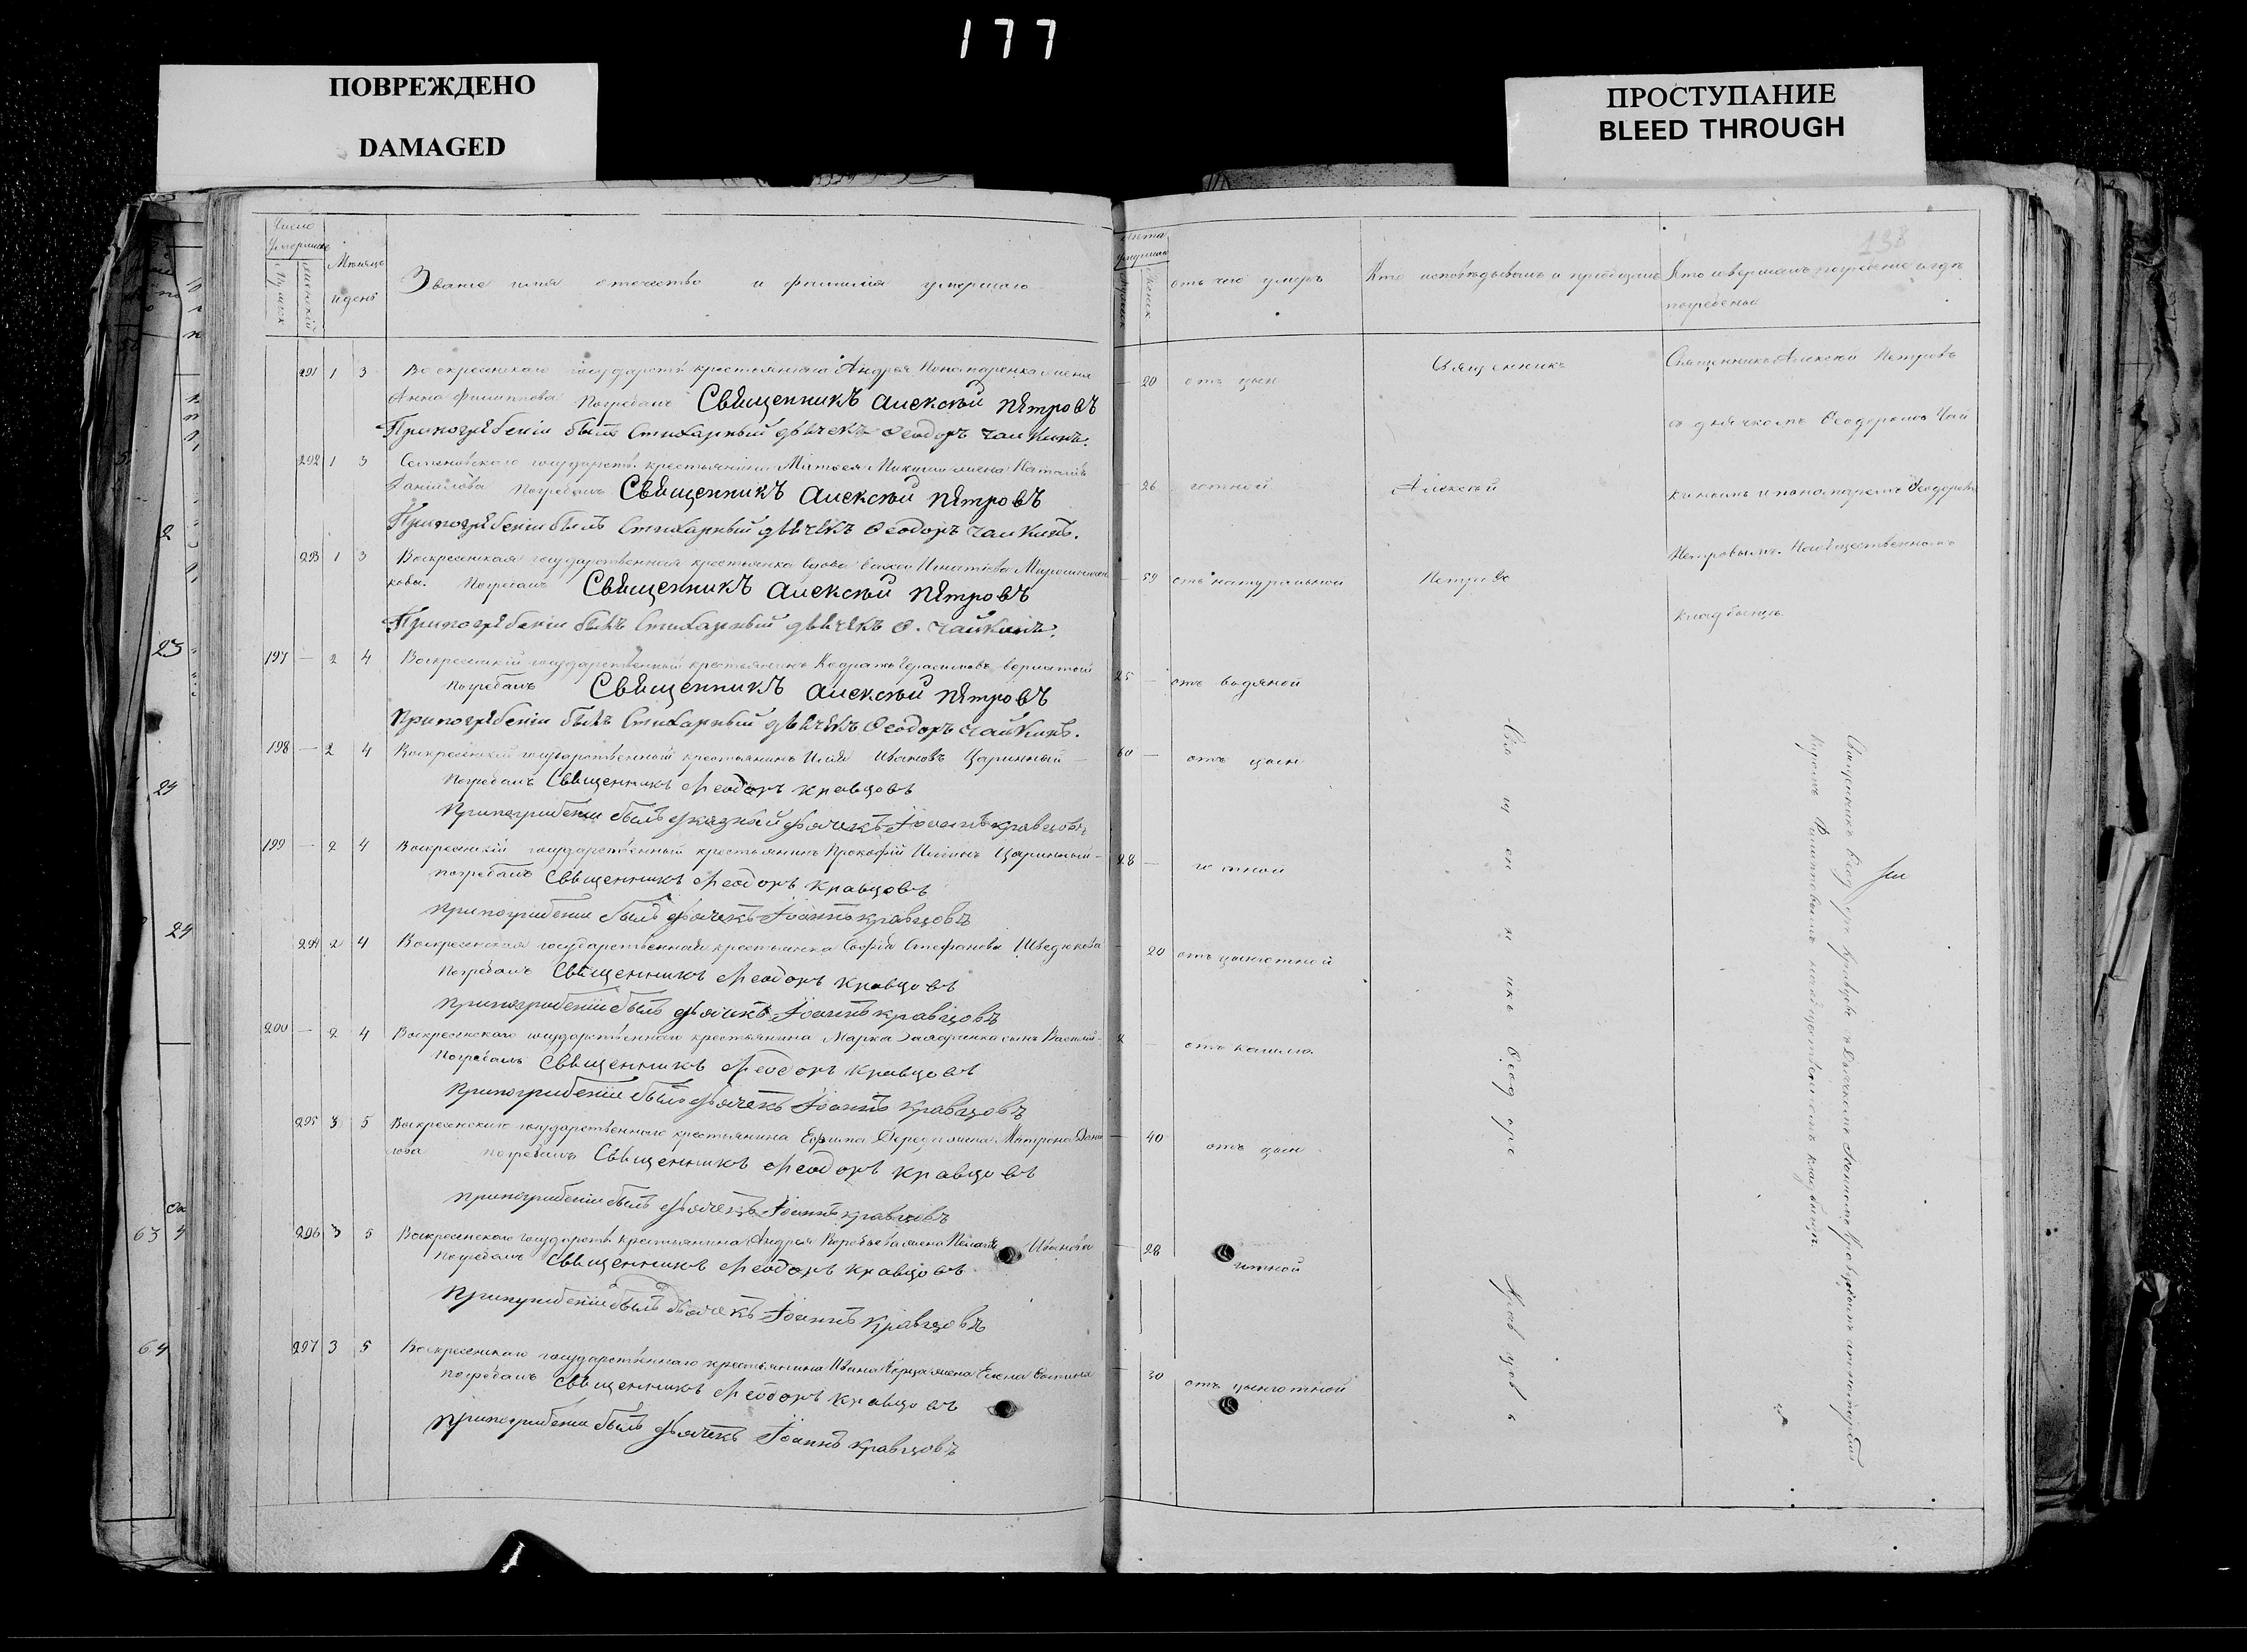 177
ПОВРЕЖДЕНО
DAMAGED
ПРОСТУПАНИЕ
BLEED THROUGH
138
Число умершихъ
Мужеск
Женскій
Мѣсяцъ и день
Званіе имя отечество и фамилія умершаго
291 1 3 Воскресенскаго государств крестьянина Андрея Понамаренка жена
Анна Филиппова Погребалъ Священникъ Алексѣй Петровъ
При погребеніи былъ Стихарный дьячекъ Феодоръ Чайкинъ.
292 1 3 Семеновскаго государств. крестьянина Матвея жена Наталія
Даніилова Погребалъ Священникъ Алексѣй Петровъ
При погребеніи былъ Стихарный дьячекъ Феодоръ Чайкинъ.
293 1 3 Воскресенская государственная крестьянка вдова Игнатіева Мирошничен
кова. Погребалъ Священникъ Алексѣй Петровъ
При погребеніи былъ Стихарный дьячекъ Ф. Чайкинъ.
197 — 2 4 Воскресенскій государственный крестьянинъ Кодратъ Герасимовъ
Погребалъ Священникъ Алексѣй Петровъ
При погребеніи былъ Стихарный дьячекъ Феодоръ Чайкинъ.
198 — 2 4 Воскресенскій государственный крестьянинъ Илія Ивановъ Царинный
Погребалъ Священникъ Феодоръ Кравцовъ
При погребеніи былъ Указный Дьячекъ Іоаннъ Кравцовъ
199 — 2 4 Воскресенскій государственный крестьянинъ Прокофій Ильинъ Царинный
Погребалъ Священникъ Феодоръ Кравцовъ
При погребеніи былъ Дьячекъ Іоаннъ Кравцовъ
294 2 4 Воскресенская государственная крестьянка Софія Стефанова Шведюкова
Погребалъ Священникъ Феодоръ Кравцовъ
При погребеніи былъ Дьячекъ Іоаннъ Кравцовъ
200 — 2 4 Воскресенскаго государственнаго крестьянина Марка сынъ Василій
Погребалъ Священникъ Феодоръ Кравцовъ
При погребеніи былъ Дьячекъ Іоаннъ Кравцовъ
295 3 5 Воскресенскаго государственнаго крестьянина Ефима жена Матрона Дани
лова Погребалъ Священникъ Феодоръ Кравцовъ
При погребеніи былъ Дьячекъ Іоаннъ Кравцовъ
296 3 5 Воскресенскаго государств крестьянина Андрея Воробьева жена Пелагія Иванова
Погребалъ Священникъ Феодоръ Кравцовъ
При погребеніи былъ Дьячекъ Іоаннъ Кравцовъ
297 3 5 Воскресенскаго государственнаго крестьянина Ивана жена Елена
Погребалъ Священникъ Феодоръ Кравцовъ
При погребеніи былъ Дьячекъ Іоаннъ Кравцовъ
Лѣта умершаго
Мужеск
Женск
отъ чего умеръ
Кто исповѣдывалъ и пріобщалъ
Кто совершалъ погребеніе и гдѣ
погребены
— 20 отъ цын
— 26 готной
— 59 отъ натуральной
25 — отъ водяной
60 — отъ цын
28 — готной
— 20 отъ цынготной
— отъ кашля
— 40 отъ цын
— 28 готной
— 30 отъ цынготной
Священникъ
Алексѣй
Петровъ
Священникъ Феодоръ Кравцовъ
Священникъ Алексѣй Петровъ
съ дьячкомъ Феодоромъ Чай
кинымъ и понамаремъ Феодоромъ
Петровымъ. На общественномъ
кладбищѣ.
Священникъ Феодоръ Кравцовъ съ Дьячкомъ Іоанномъ Кравцовымъ и понамаремъ
Филипповымъ на общественномъ кладбищѣ.